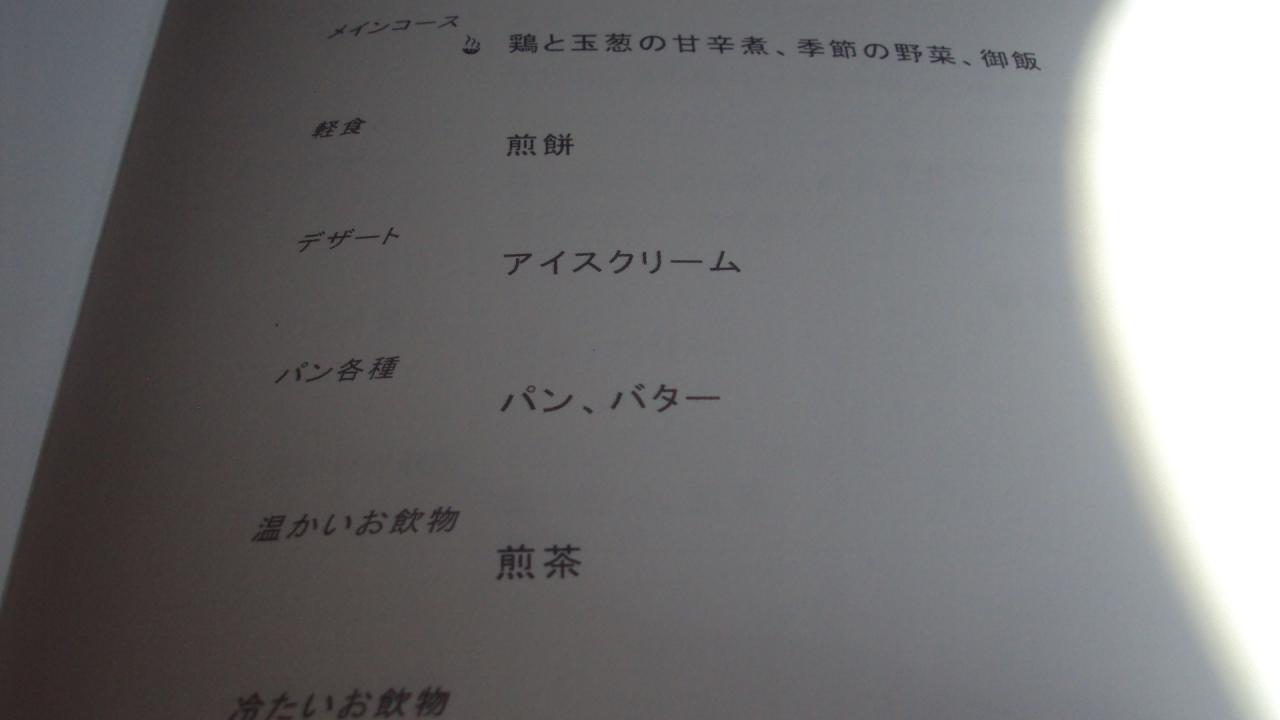 メインコース
鶏と玉葱の甘辛煮、季節の野菜、御飯
軽食
煎餅
デザート
アイスクリーム
パン各種
パン、バター
温かいお飲物
煎茶
冷たいお飲物